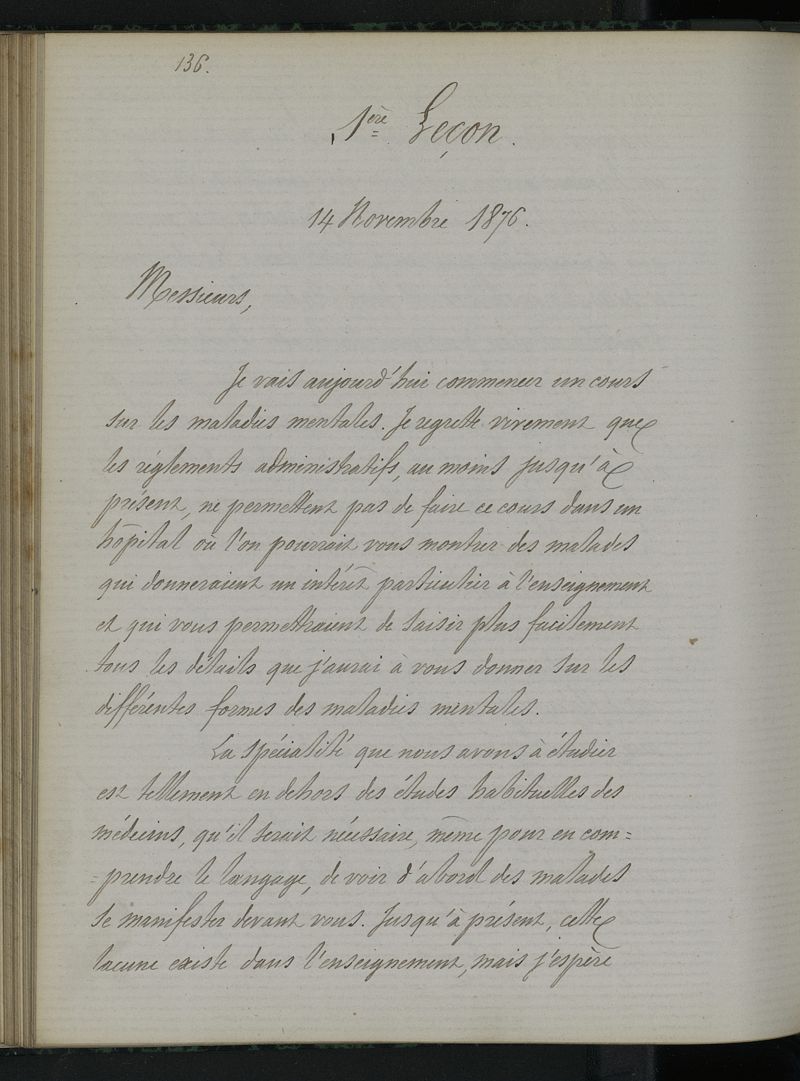 136.
1ère Leçon.
14 Novembre 1876.
Messieurs,
Je vais aujourd'hui commencer un cours
sur les maladies mentales. Je regrette vivement que
les réglements administratifs, au moins jusqu'à
présent, ne permettent pas de faire ce cours dans un
hôpital où l'on pourrait vous montrer des malades
qui donneraient un intérêt particulier à l'enseignement
et qui vous permettraient de saisir plus facilement
tous les détails que j'aurai à vous donner sur les
différentes formes des maladies mentales.
La spécialité que nous avons à étudier
est tellement en dehors des études habituelles des
médecins, qu'il serait nécessaire, même pour en com=
=prendre le langage, de voir d'abord des malades
se manifester devant vous. Jusqu'à présent, cette
lacune existe dans l'enseignement, mais j'espère